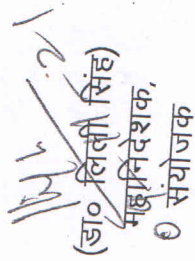 (डा० लिली सिंह)
महानिदेशक,
संयोजक